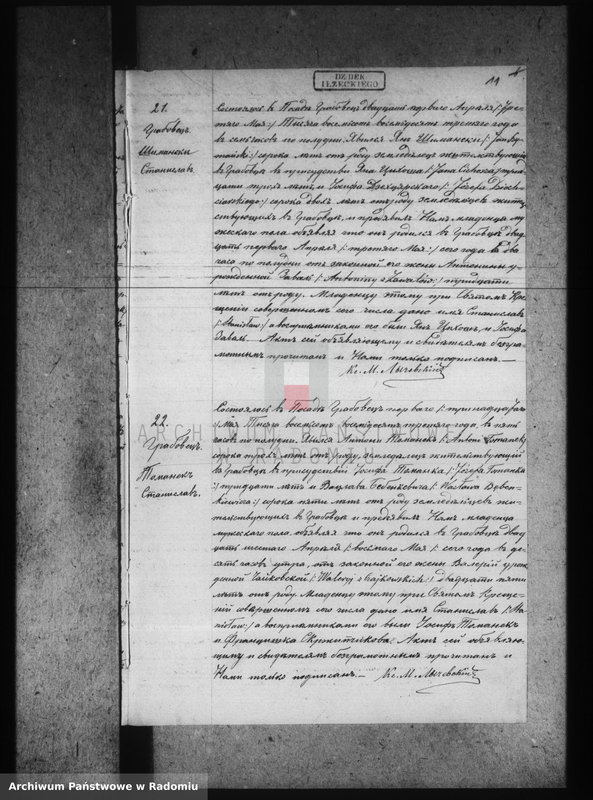 DZ. DEK.
IŁŻECKIEGO
11
21.
Грабовецъ
Шимански
Станиславъ
Состоялось въ Посадѣ Грабовецъ двадцать перваго Апрѣля /: Тре-
тяго Мая :/ Тысяча восемьсотъ восемдесятъ третяго года
въ семь часовъ по полудни. Явился Янъ Шимански /: Jan Szy-
mański :/ сорока лѣтъ отъ роду, земледѣлецъ жительствующій
въ Грабовцѣ въ присутствіи Яна Цихоша /: Jana Cichosa :/ трид-
цати трехъ лѣтъ, и Іосифа /: Józefa
:/ сорока двухъ лѣтъ отъ роду земледѣльцевъ жител-
ствующихъ въ Грабовцѣ, и предъявилъ Намъ младенца му-
жескаго пола объявляя что онъ родился въ Грабовцѣ двад-
цать перваго Апрѣля /: третяго Мая :/ сего года въ два
часа по полудни отъ законной его жены Антонины у-
рожденной Заваль /: Antoniny z Zawałów :/ тридцати
лѣтъ отъ роду. Младенцу этому при Святомъ Кре-
щеніи совершенномъ сего числа дано имя Станиславъ
/: Stanisław :/ а воспріемниками его были Янъ Цихошъ, и Іосифа
Заваль. Актъ сей объявляющему и свидѣтелямъ безгра-
мотнымъ прочитанъ и Нами только подписанъ. —
Кс. М. Лычевскій
22.
Грабовецъ.
Томанекъ
Станиславъ.
Состоялось въ Посадѣ Грабовецъ перваго /: тринадцатаго
/: Мая Тысяча восемьсотъ восемдесятъ третяго года, въ пять
часовъ по полудни. Явился Антони Томанекъ /: Antoni Tomanek
сорока трехъ лѣтъ отъ роду, земледѣлецъ жительствующій
въ Грабовцѣ въ присутствіи Іосифа Томанка /: Józefa Tomanka
:/ тридцати лѣтъ и Вацлава Бебенкевича /: Wacława Beben-
kiewicza :/ сорока пяти лѣтъ отъ роду земледѣльцевъ жи-
тельствующихъ въ Грабовцѣ и предъявилъ Намъ младенца
мужескаго пола объявляя что онъ родился въ Грабовцѣ двад-
цать шестаго Апрѣля /: восьмаго Мая :/ сего года въ де-
сять часовъ утра, отъ законной его жены Валеріи урож-
денной Чайковской /: Waleryi z Czajkowskich :/ двадцати пяти
лѣтъ отъ роду. Младенцу этому при Святомъ Креще-
ніи совершенномъ сего числа дано имя Станиславъ /: Sta-
nisław :/ а воспріемниками его были Іосифъ Томанекъ
и Францишка Актъ сей объявляю-
щему и свидѣтелямъ безграмотнымъ прочитанъ и
Нами только подписанъ. — Кс. М. Лычевскій
ARCHIWUM PAŃSTWOWE
Archiwum Państwowe w Radomiu